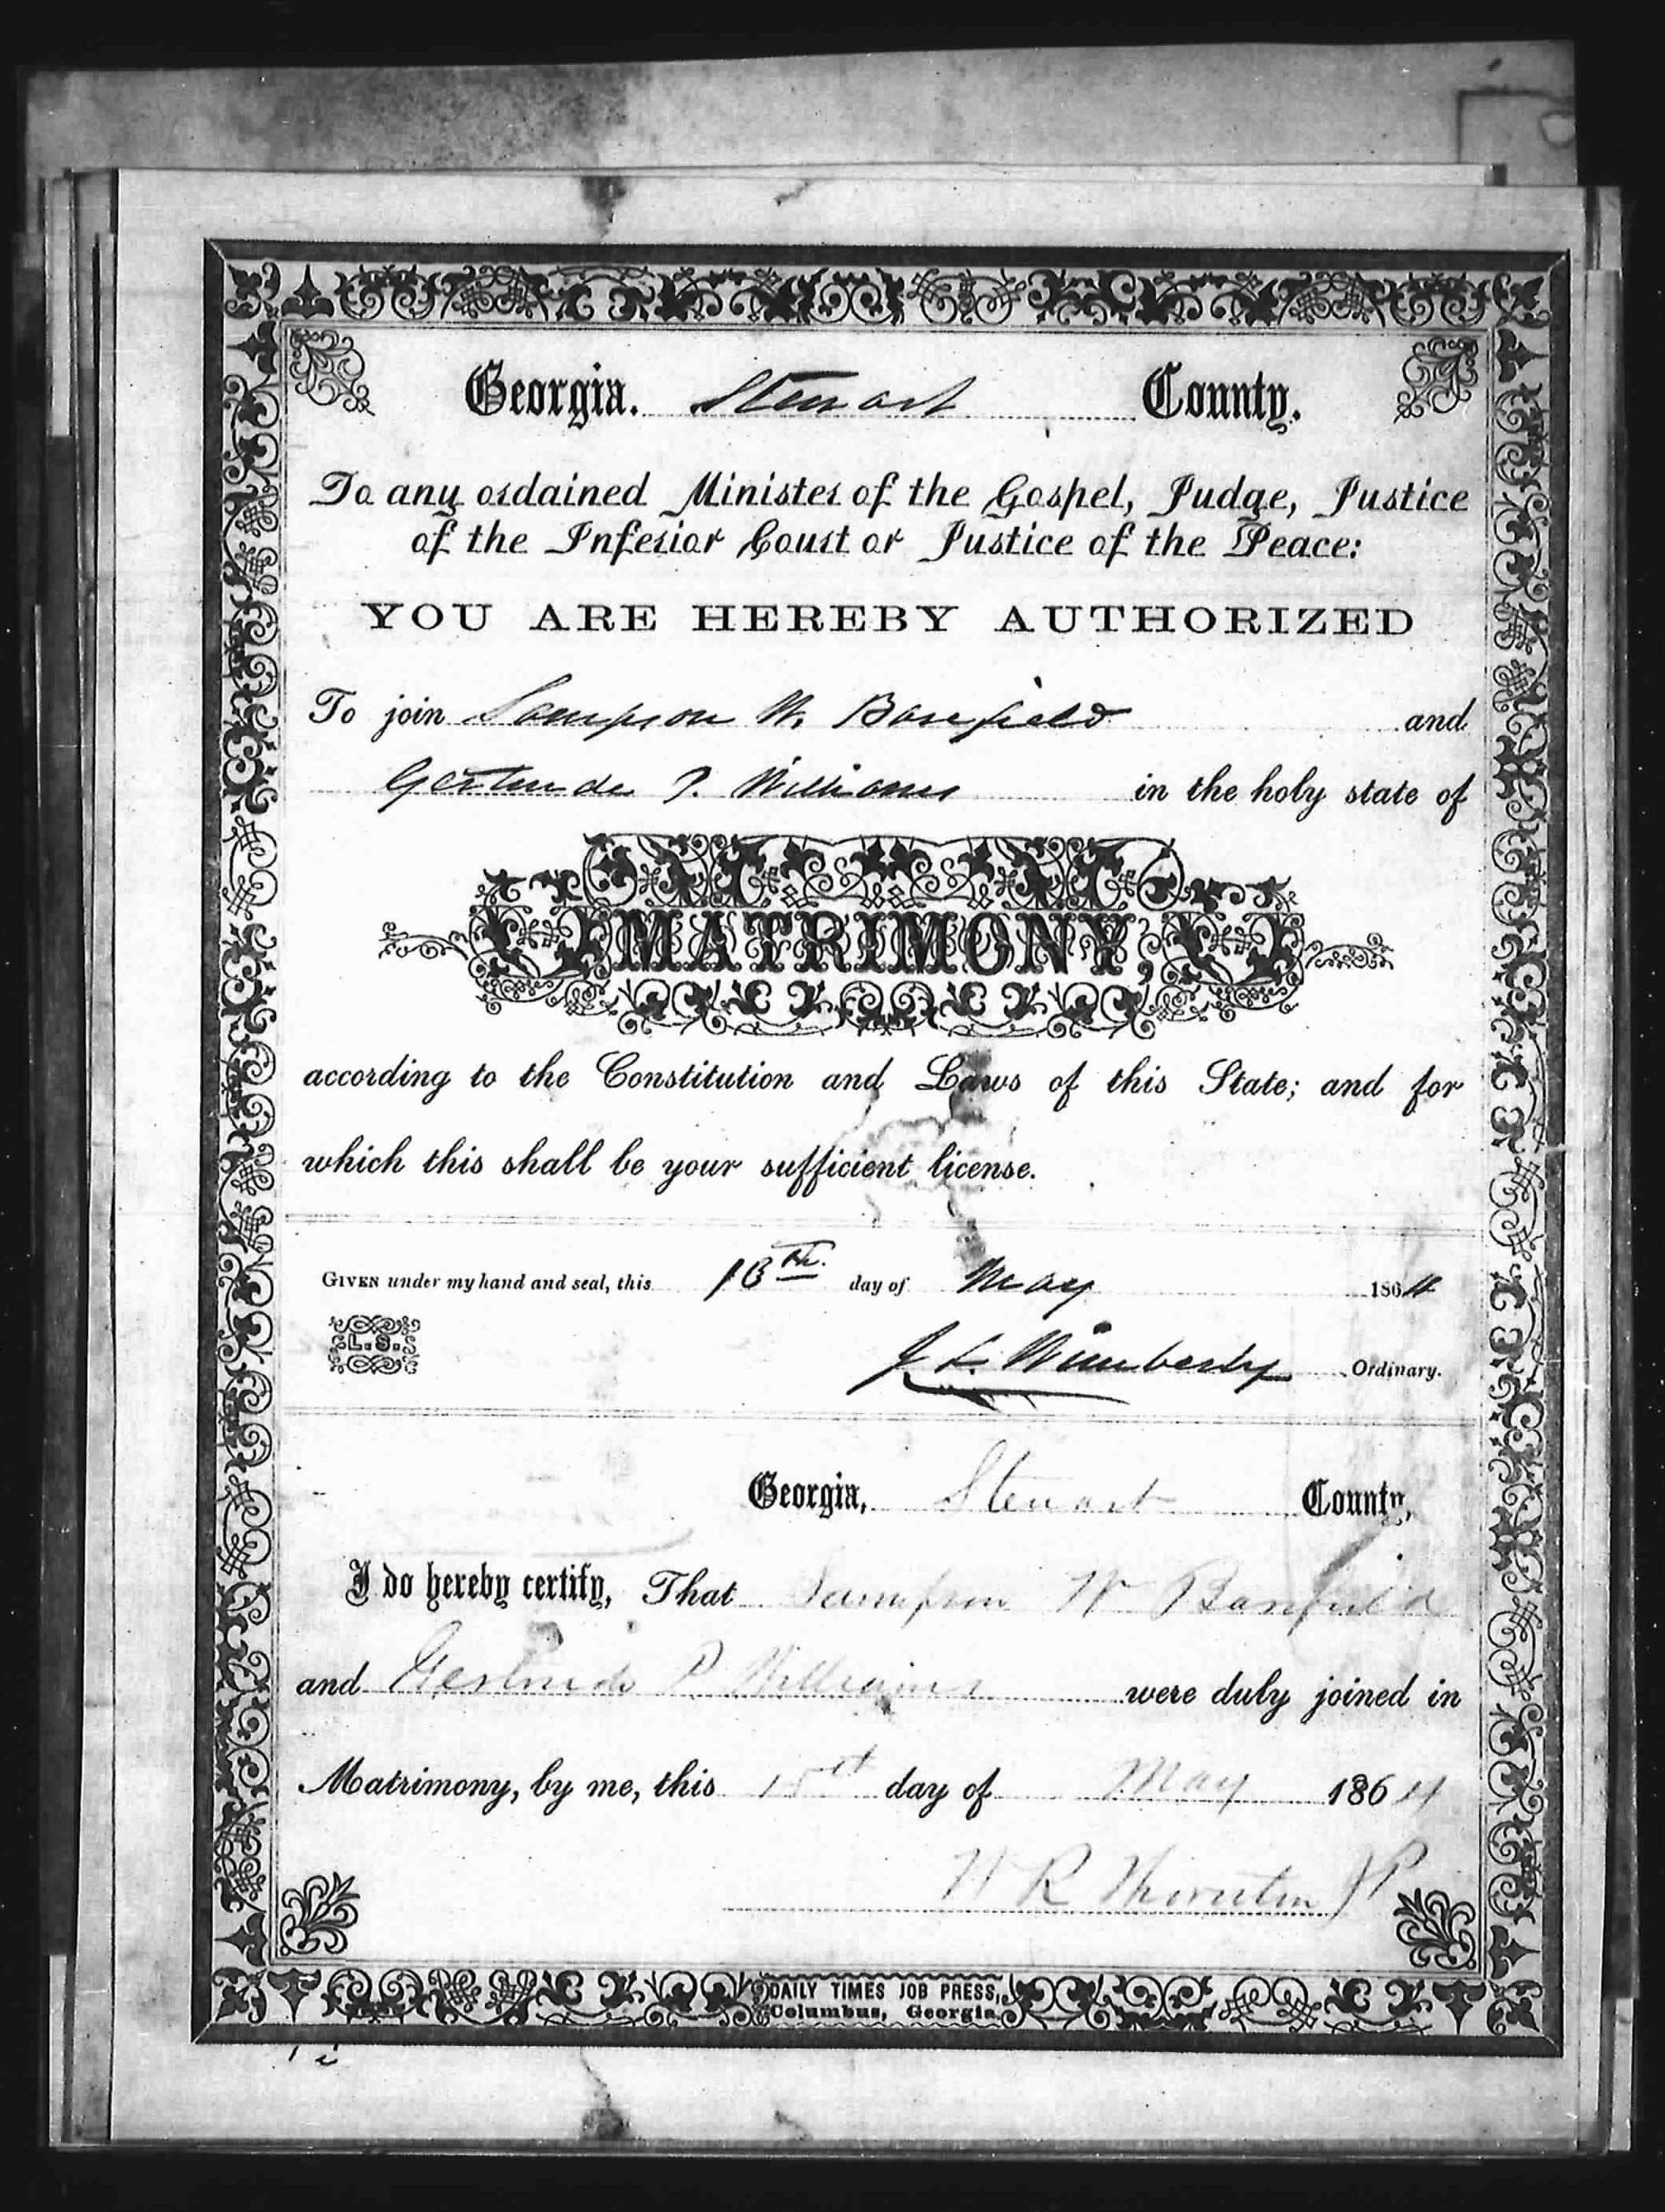 Georgia. Stewart County.
To any ordained Minister of the Gospel, Judge, Justice
of the Inferior Court or Justice of the Peace:
YOU ARE HEREBY AUTHORIZED
To join Sampson W. Barfield and
Gertrude P. Williams in the holy state of
MATRIMONY,
according to the Constitution and Laws of this State; and for
which this shall be your sufficient license.
GIVEN under my hand and seal, this 13th. day of May 1864
L.S.
J. L. Wimberly Ordinary.
Georgia, Stewart County,
I do hereby certify, That Sampson W Barfield
and Gertrude P Williams were duly joined in
Matrimony, by me, this 15th day of May 1864
W R Thornton JP
DAILY TIMES JOB PRESS,
Columbus, Georgia.